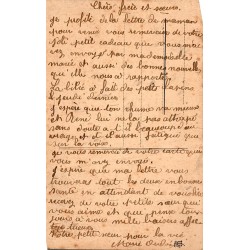 Chers frère et sœur,
je profite de la lettre de maman
pour venir vous remercier de votre
joli petit cadeau que vous m'avez
envoyé par mademoiselle
marie et aussi des bonnes nouvelles
qu'elle nous a rapporté
La bête a fait des petits
jeudi dernier
J'espère que ton rhume va mieux
et René lui ne la pas attrapé
sans doute a t il beaucoup
et il est aussi
sur la
je vous remercie de votre carte que
vous m'avez envoyé.
J'espère que ma lettre vous
trouvera tout les deux en bonne
santé en attendant de vous
recevez de votre petite sœur qui
vous aime et qui pense toujours
à vous mille baisers
Votre petite sœur pour la vie
Marie